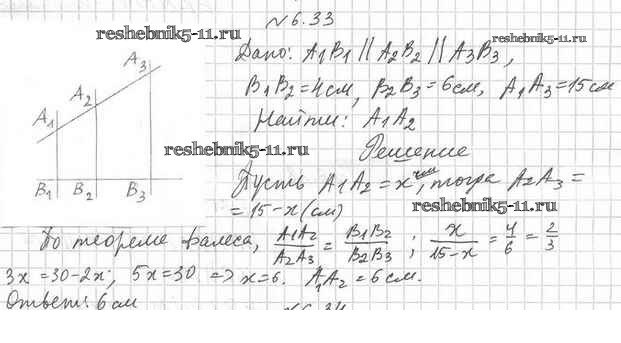 №6.33
reshebnik5-11.ru
reshebnik5-11.ru
Дано: A1B1 || A2B2 || A3B3,
B1B2=4см, B2B3=6см, A1A3=15см
Найти: A1A2
reshebnik5-11.ru
Решение
A1 A2 A3
B1 B2 B3
Пусть A1A2=x см, тогда A2A3=
=15-x (см)
reshebnik5-11.ru
По теореме Фалеса, A1A2/A2A3 = B1B2/B2B3; x/15-x = 4/6 = 2/3
3x=30-2x; 5x=30 => x=6. A1A2=6см.
Ответ: 6см
№6.34